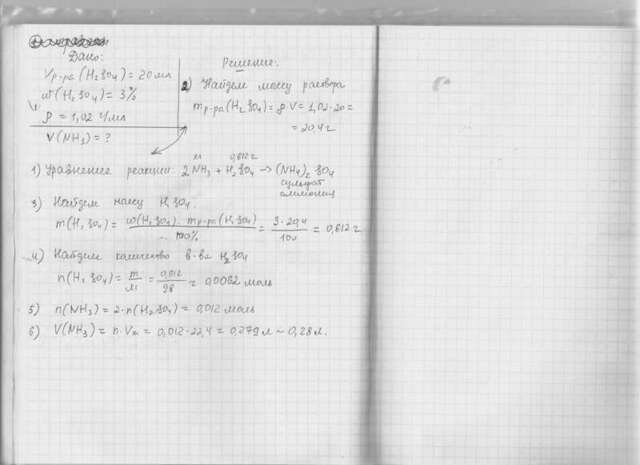 Дано:
Vр-ра(H₂SO₄) = 20 мл
w(H₂SO₄) = 3%
ρ = 1,02 г/мл
V(NH₃) = ?
Решение:
2) Найдем массу раствора
mр-ра(H₂SO₄) = ρ·V = 1,02·20 =
= 20,4 г
0,612 г
1) Уравнение реакции: 2NH₃ + H₂SO₄ → (NH₄)₂SO₄
сульфат
аммония
3) Найдем массу H₂SO₄.
m(H₂SO₄) = w(H₂SO₄)·mр-ра(H₂SO₄) / 100% = 3·20,4 / 100 = 0,612 г
4) Найдем количество в-ва H₂SO₄
n(H₂SO₄) = m / M = 0,612 / 98 = 0,0062 моль
5) n(NH₃) = 2·n(H₂SO₄) = 0,012 моль
6) V(NH₃) = n·Vm = 0,012·22,4 = 0,279 л ~ 0,28 л.